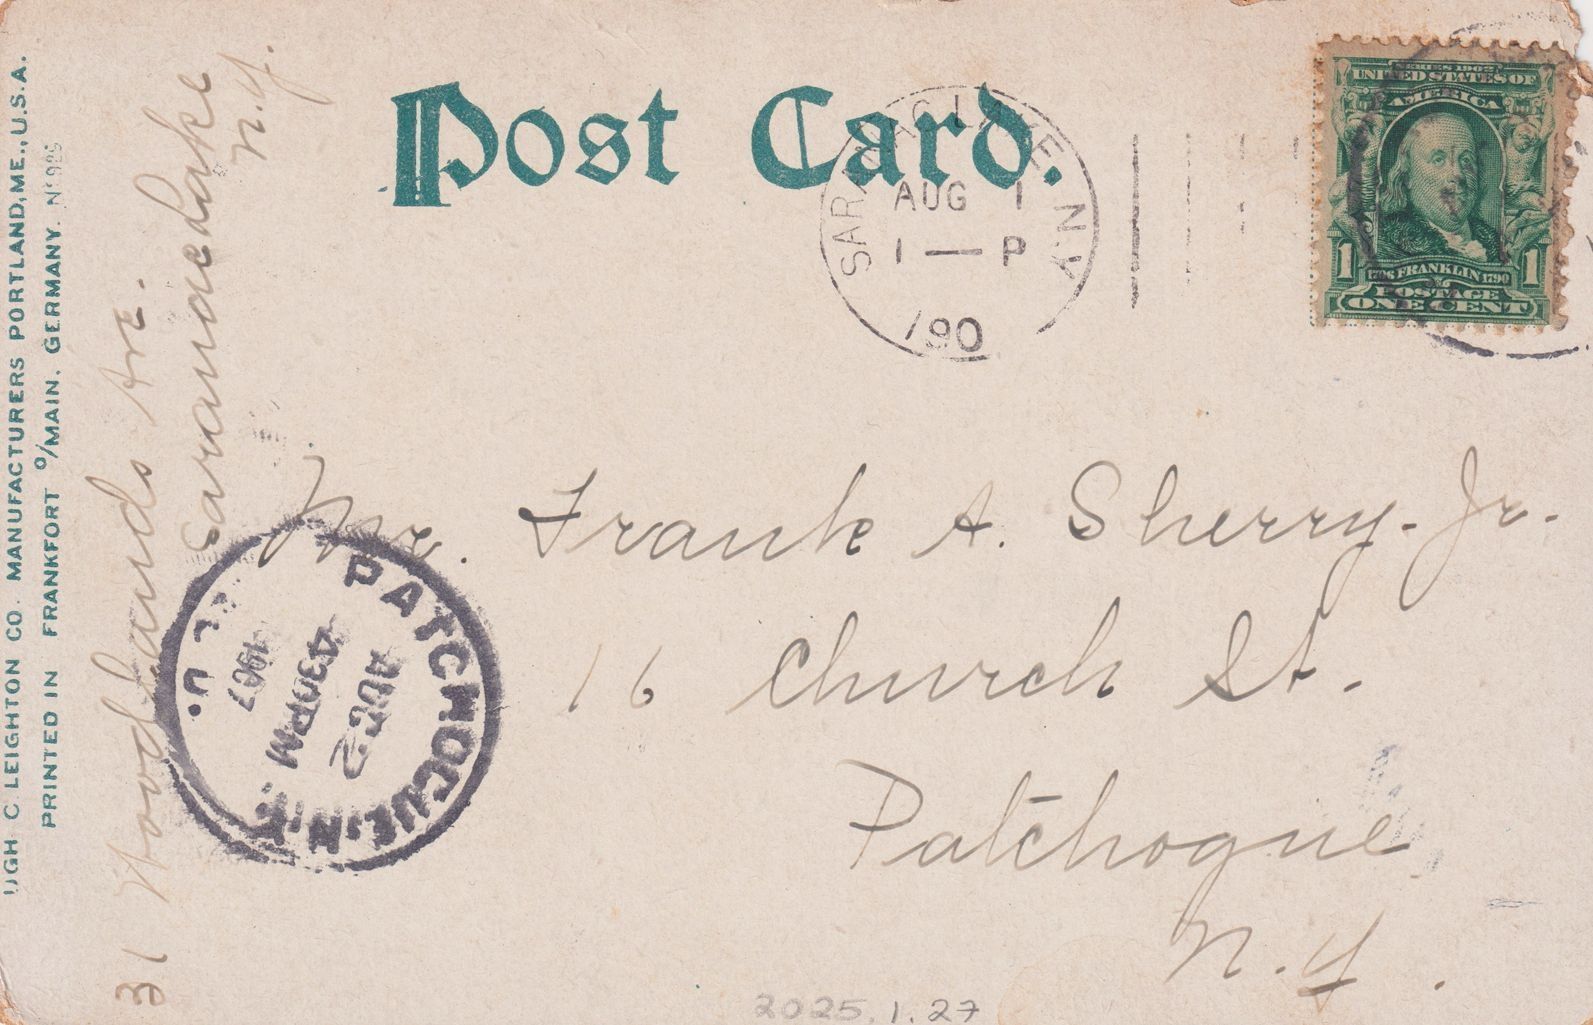 Post Card
SARANAC LAKE N.Y.
AUG 1
1 — P
190
SERIES 1902
UNITED STATES OF
AMERICA
1 1706 FRANKLIN 1790 1
POSTAGE
ONE CENT
Mr. Frank A. Sherry. Jr.
16 Church St.
Patchogue
N.Y.
31 Woodlands Ave.
Saranac Lake
N.Y.
UGH C. LEIGHTON CO. MANUFACTURERS PORTLAND, ME., U.S.A.
PRINTED IN FRANKFORT O/MAIN, GERMANY. No
PATCHOGUE, N.Y.
AUG 2
430PM
1907
REC'D.
2025.1.27